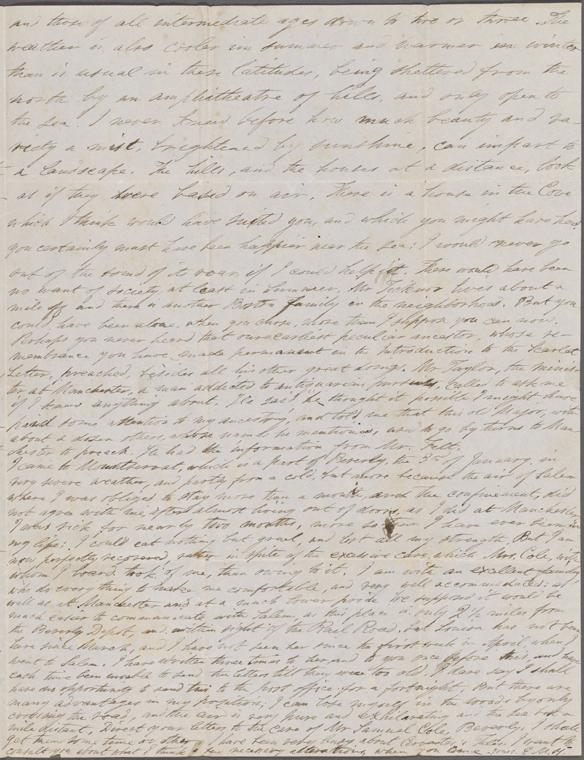 and those of all intermediate ages down to two or three. The
weather is also cooler in summer and warmer in winter
than is usual in these latitudes, being sheltered from the
north by an amphitheatre of hills, and only open to
the sea. I never knew before how much beauty and va-
riety a mist, brightened by sunshine, can impart to
a landscape. The hills, and the houses at a distance, look
as if they were based on air. There is a house in the Cove
which I think would have suited you, and which you might have had
you certainly must have been happier near the sea; I would never go
out of the sound of its roar if I could help it. There would have been
no want of society at least in summer, Mr. Ticknor lives about a
mile off and there is another Boston family in the neighborhood. But you
could have been alone when you chose, more than I suppose you can now.
Perhaps you never heard that our earliest peculiar ancestor, whose re-
membrance you have made permanent in the Introduction to the Scarlet
Letter, preached, besides all his other great doings. Mr. Taylor, the minis-
ter at Manchester, a man addicted to antiquarian pursuits, called to ask me
if I knew anything about. He said he thought it possible I might have
paid some attention to my ancestry, and told me that this old Major, with
about a dozen others, whose names he mentioned, used to go by turns to Man-
chester to preach. He had the information from Mr. Felt.
I came to Montserrat, which is a part of Beverly, the 3rd of January, in
very severe weather, and partly from a cold, but more because the air of Salem
where I was obliged to stay more than a month and the confinement, did
not agree with me, after almost living out of doors, as I did at Manchester
I was sick for nearly two months, more so than I have ever been in
my life; I could eat nothing but gruel, and lost all my strength. But I am
now perfectly recovered, rather in spite of the excessive care which Mrs. Cole, with
whom I board, took of me, than owing to it. I am with an excellent family
who do everything to make me comfortable, and very well accommodated; as
well as at Manchester and at a much lower price. We supposed it would be
much easier to communicate with Salem, as this place is only 2 1/2 miles from
the Beverly Depot, and within sight of the Rail Road, but Louisa has not been
here since March, and I have not seen her since the first week in April, when I
went to Salem. I have written three times to her and to you once before this, and they
each time been unable to send the letters till they were too old. I dare say I shall
have no opportunity to send this to the post office for a fortnight. But there are
many advantages in my position, I can lose myself in the woods by only
crossing the road, and the air is very pure and exhilarating as the sea is but a
mile distant. Direct your letters to the care of Mr. Samuel Cole, Beverly, I shall
get them some time or other.